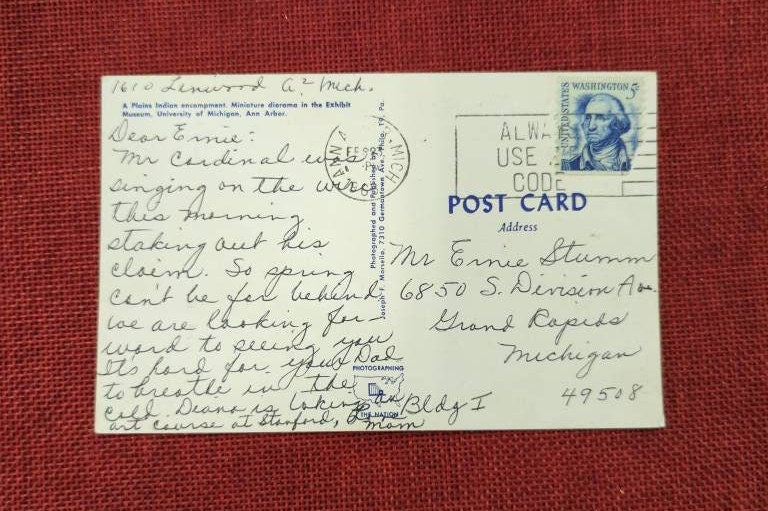 1610 Linwood A² Mich.
A Plains Indian encampment. Miniature diorama in the Exhibit
Museum, University of Michigan, Ann Arbor.
Dear Ernie:
Mr Cardinal was
singing on the wire
this morning
staking out his
claim. So spring
can't be far behind.
we are looking for-
ward to seeing you
It's hard for your Dad
to breathe in the
cold. Deana is taking an
art course at Stanford,
Mom
Photographed and Published by
Joseph F. Marsella, 7310 Germantown Ave., Phila. 19, Pa.
PHOTOGRAPHING
THE NATION
ANN A MICH
FEB 2
PM
ALWA
USE
CODE
UNITED STATES
WASHINGTON 5¢
POST CARD
Address
Mr Ernie Stumm
6850 S. Division Ave.
Grand Rapids
Michigan
49508
Bldg I